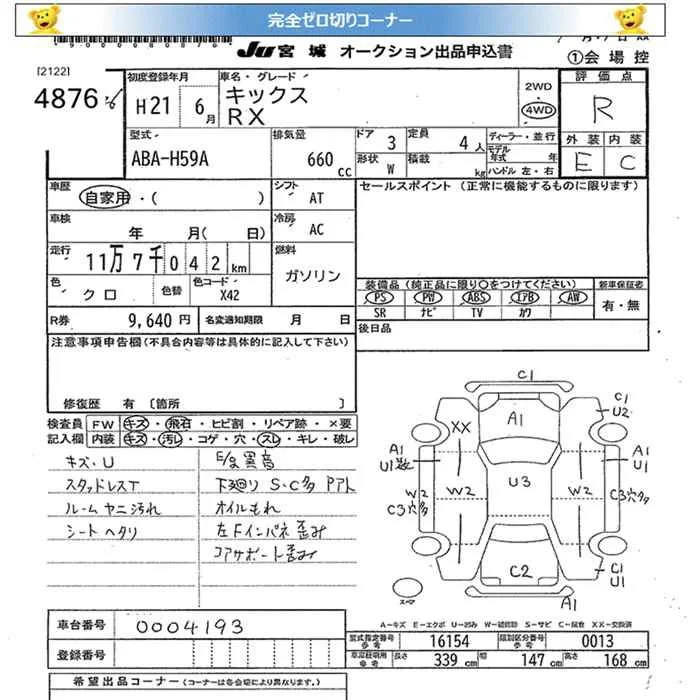 完全ゼロ切りコーナー
JU宮城 オークション出品申込書
①会場控
[2122]
4876
初度登録年月 H21 6月
車名・グレード キックス RX
2WD 4WD
評価点 R
外装 E 内装 C
型式 ABA-H59A
排気量 660cc
ドア 3 形状 W
定員 4人 積載 kg
ディーラー・並行
モデル年式 年
ハンドル 左・右
車歴 自家用・( )
シフト AT
セールスポイント (正常に機能するものに限ります)
車検 年 月( 日)
冷房 AC
走行 11万7千042km
燃料 ガソリン
色 クロ 色替 色コード X42
装備品 (純正品に限り○をつけてください) 新車保証書
PS PW ABS エアB AW 有・無
SR ナビ TV カワ
R券 9,640円 名変通知期限 月 日
後日品
注意事項申告欄(不具合内容等は具体的に記入して下さい)
修復歴 有 [箇所 ]
検査員 FW キズ・飛石・ヒビ割・リペア跡・×要
記入欄 内装 キズ・汚レ・コゲ・穴・スレ・キレ・破レ
キズ・U
スタッドレスT
ルームヤニ汚れ
シートヘタリ
E/g異音
下廻り S・C多 Pアト
オイルもれ
左Fインパネ歪み
コアサポート歪み
C1
C1 U2
XX
A1
A1
U1
A1
U1
U3
W2
W2
W2
W2
C3穴多
C3穴多
C2
C1
U1
A1
スペア
A-キズ E-エクボ U-凹み S-サビ C-腐食 XX-交換済
車台番号 0004193
型式指定番号 参考 16154 類別区分番号 参考 0013
登録番号
車庫証明用 参考 長さ 339cm 幅 147cm 高さ 168cm
希望出品コーナー (コーナーは各会場により異なります。)